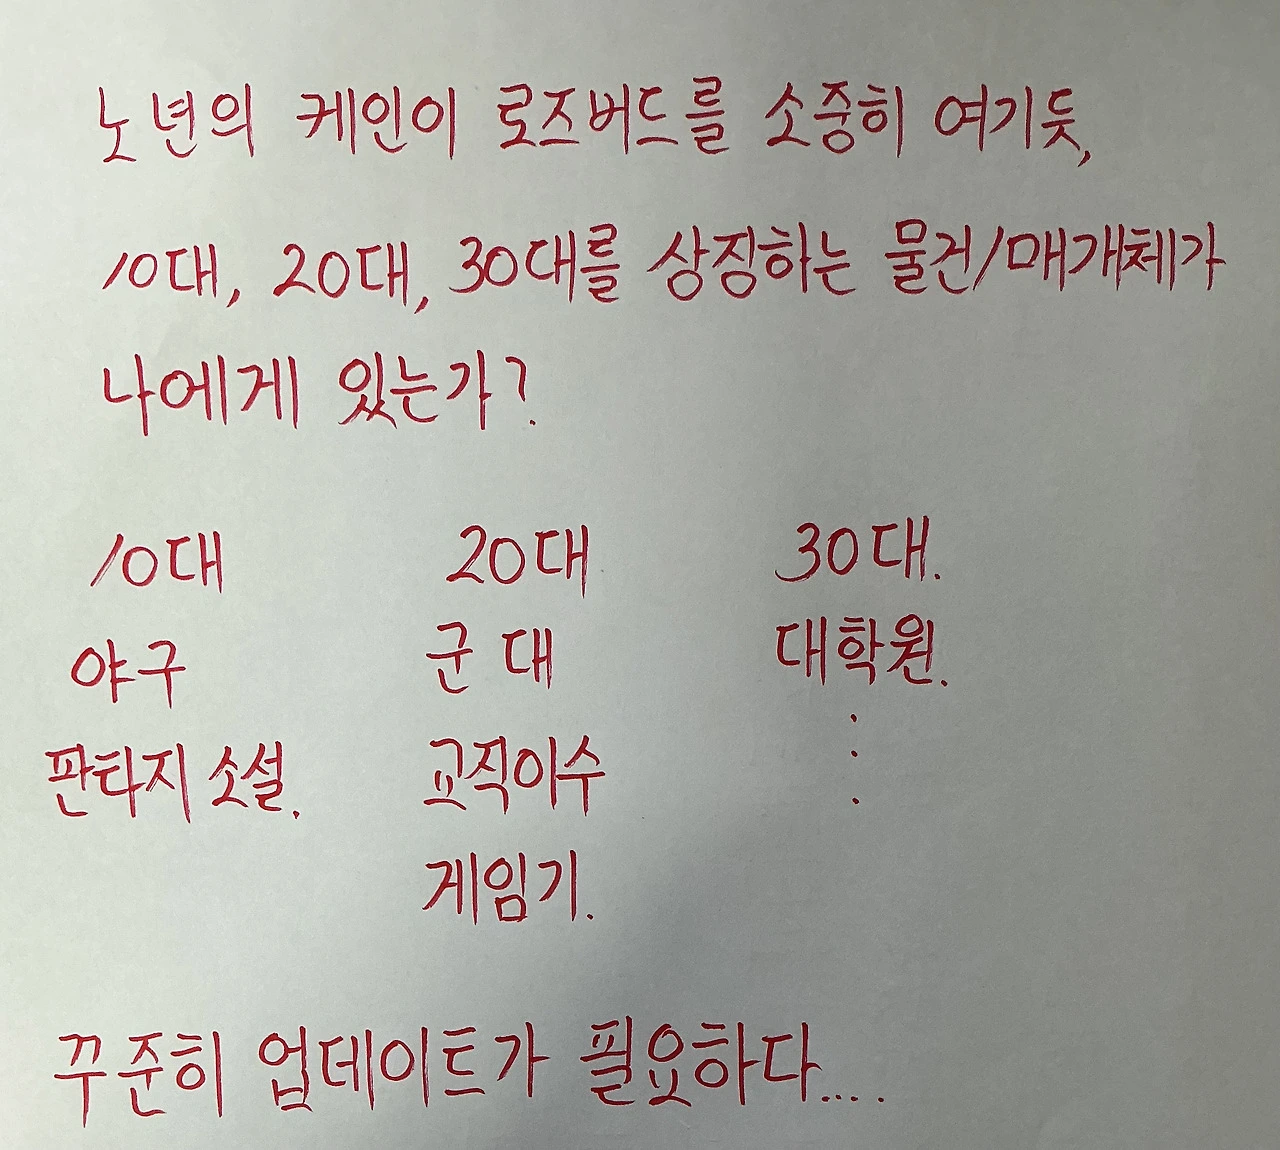 노년의 케인이 로즈버드를 소중히 여기듯,
10대, 20대, 30대를 상징하는 물건/매개체가
나에게 있는가?
10대 20대 30대.
야구 군대 대학원.
판타지 소설. 교직이수 ⋮
게임기.
꾸준히 업데이트가 필요하다....